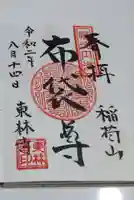 奉拝
稲荷山
布袋尊
令和二年
八月十四日
東林寺